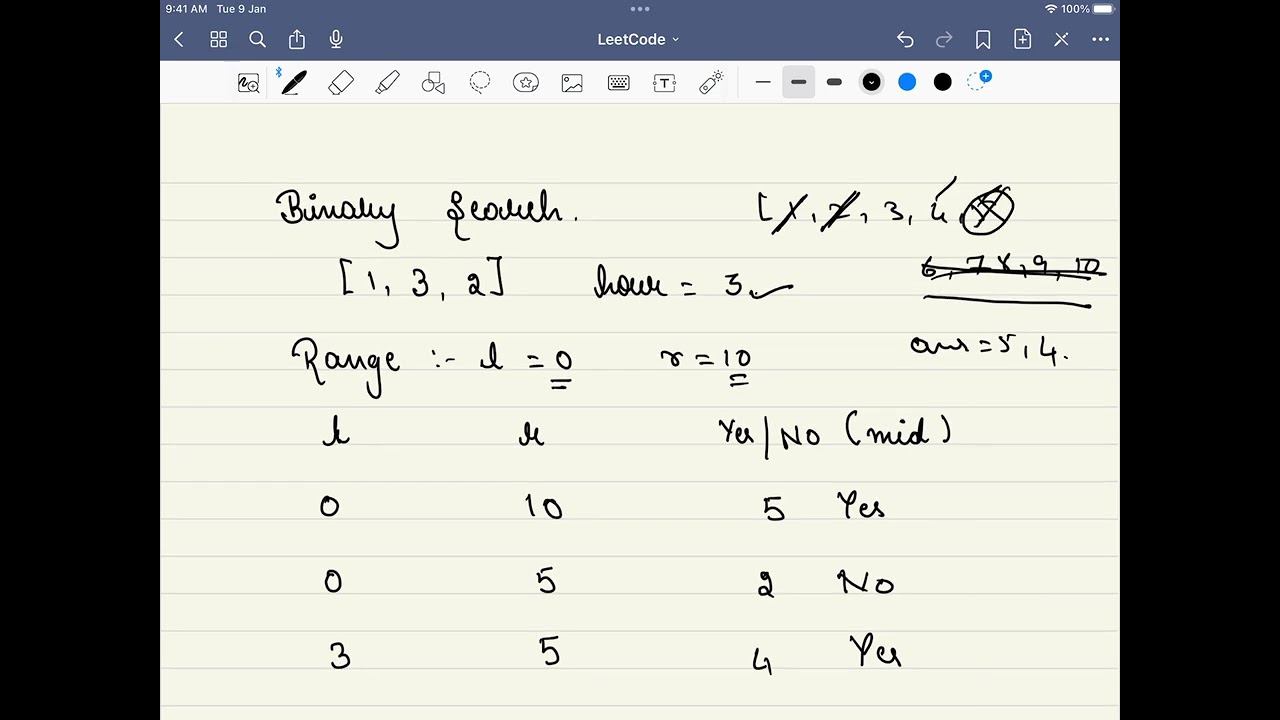 9:41 AM Tue 9 Jan
100%
LeetCode
T
Binary Search.
[1, 2, 3, 4,
[1, 3, 2] hour = 3
6, 7 8, 9, 10
Range :- l = 0 r = 10
ans = 5, 4.
l r Yes | No (mid)
0 10 5 Yes
0 5 2 No
3 5 4 Yes